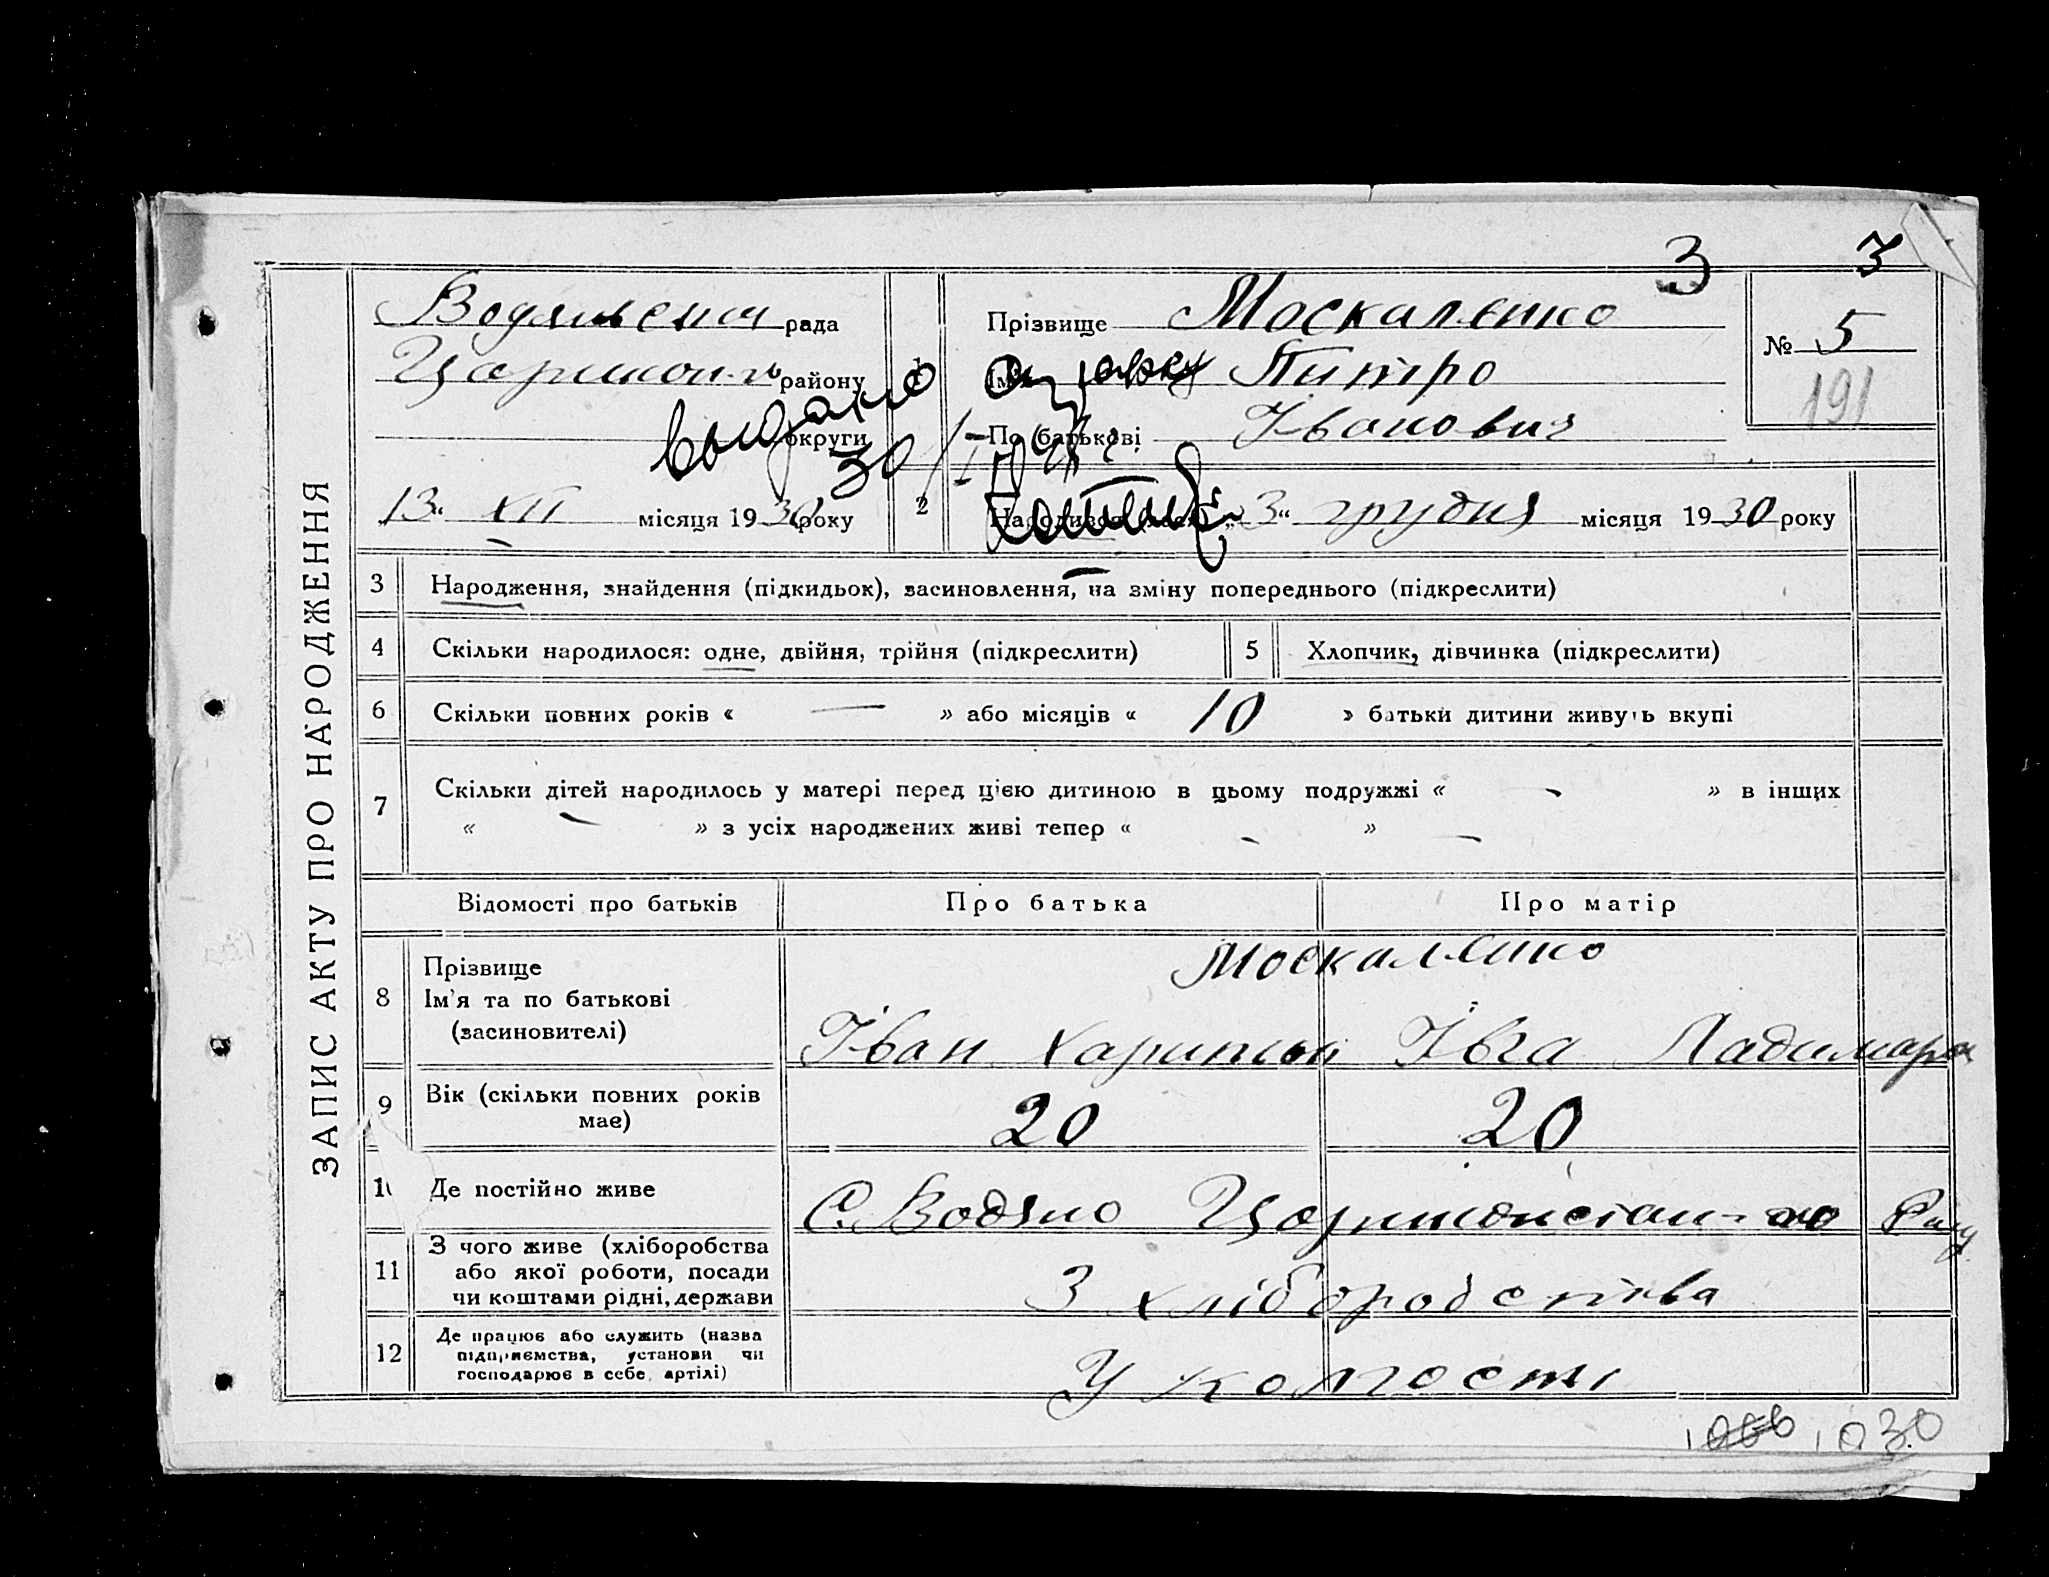 3 3
Водянська рада
Прізвище Москаленко
№ 5
191
Царичан-го району
1
Ім'я Питро
видано
округи
По батькові Іванович
30/I
13 " XII місяця 1930 року
2
Народився 3 " грудня місяця 1930 року
ЗАПИС АКТУ ПРО НАРОДЖЕННЯ
3 Народження, знайдення (підкидьок), засиновлення, на зміну попереднього (підкреслити)
4 Скільки народилося: одне, двійня, трійня (підкреслити) 5 Хлопчик, дівчинка (підкреслити)
6 Скільки повних років « — » або місяців « 10 » батьки дитини живуть вкупі
7 Скільки дітей народилось у матері перед цією дитиною в цьому подружжі « - » в інших
« - » з усіх народжених живі тепер « - » -
Відомості про батьків Про батька Про матір
Москаленко
8 Прізвище
Ім'я та по батькові
(засиновителі)
Іван Харитон Івга Ладимара
9 Вік (скільки повних років
має)
20 20
10 Де постійно живе С. Водяно Царичанского Рану
11 З чого живе (хліборобства
або якої роботи, посади
чи коштами рідні, держави
З хліборобства
12 Де працює або служить (назва
підприємства, установи чи
господарює в себе, артілі)
У колгості
1030